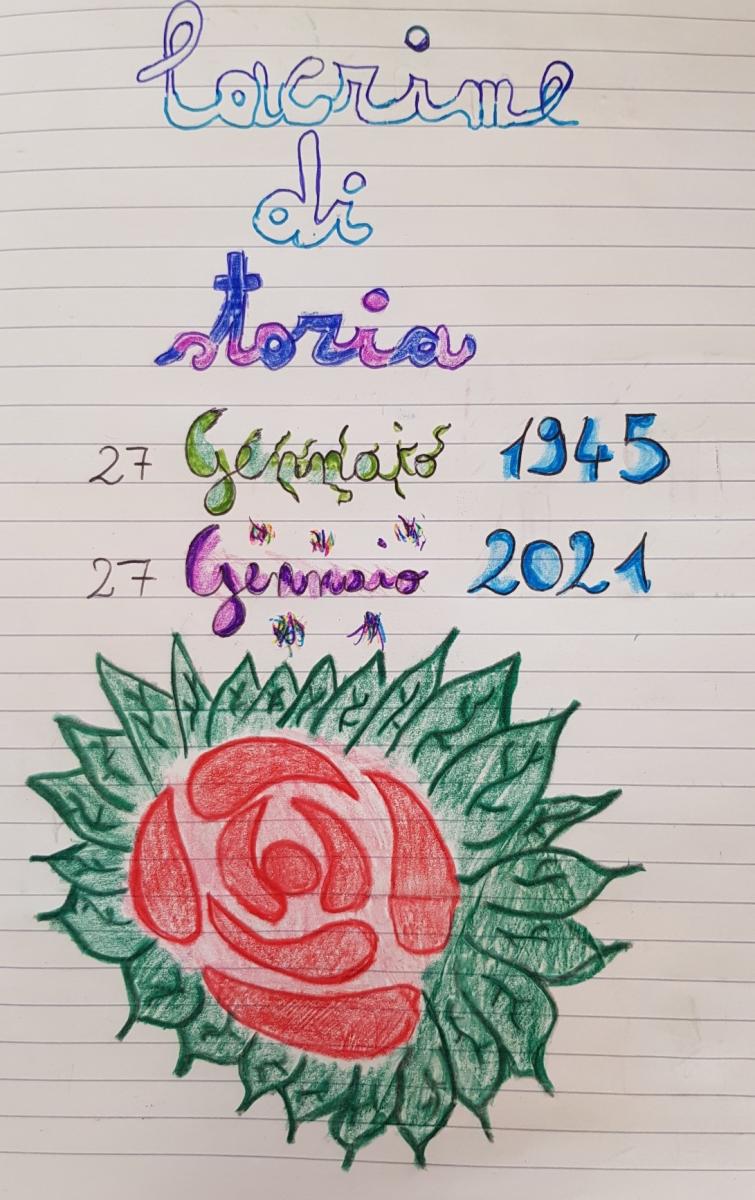 lacrime
di
storia
27 Gennaio 1945
27 Gennaio 2021